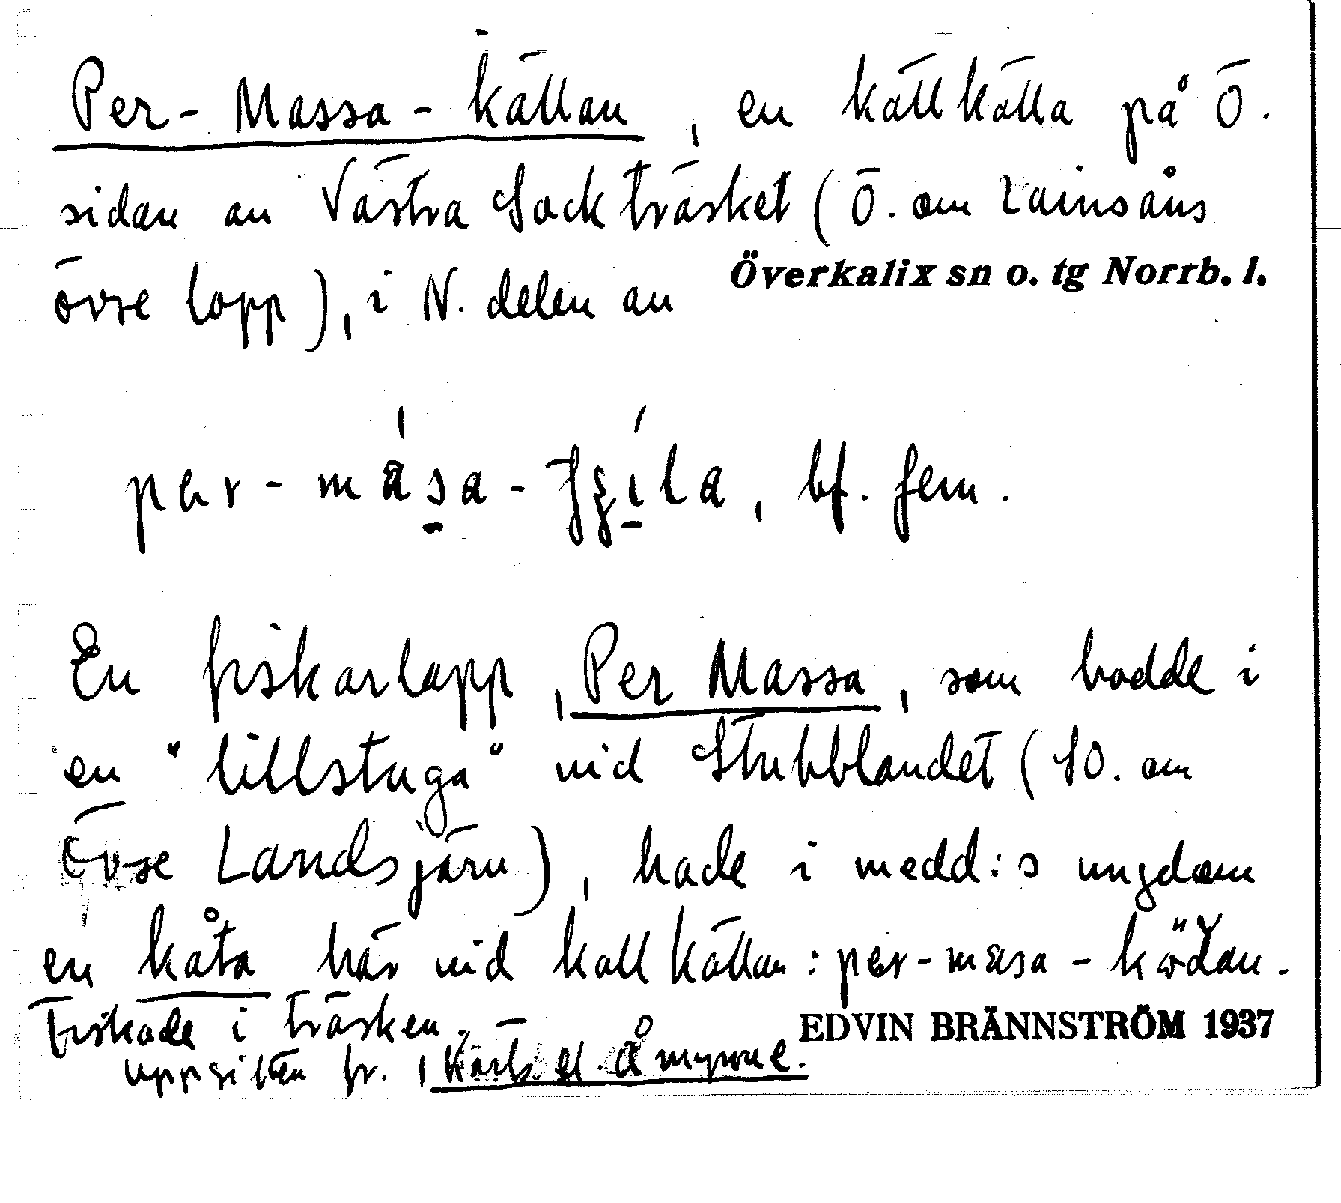 Per-Massa-källan, en kallkälla på Ö.
sidan av Västra Sockträsket (Ö. om Lainsåns
övre lopp), i N. delen av Överkalix sn o. tg Norrb. l.
per-, bf. fem.
En fiskarlapp, Per Massa, som bodde i
en "lillstuga" vid Stubblandet (SO. om
Övre Landsjärv), hade i medd:s ungdom
en kåta här vid kallkällan: per-masa-
Fiskade i träsken. EDVIN BRÄNNSTRÖM 1937
uppgiften fr.